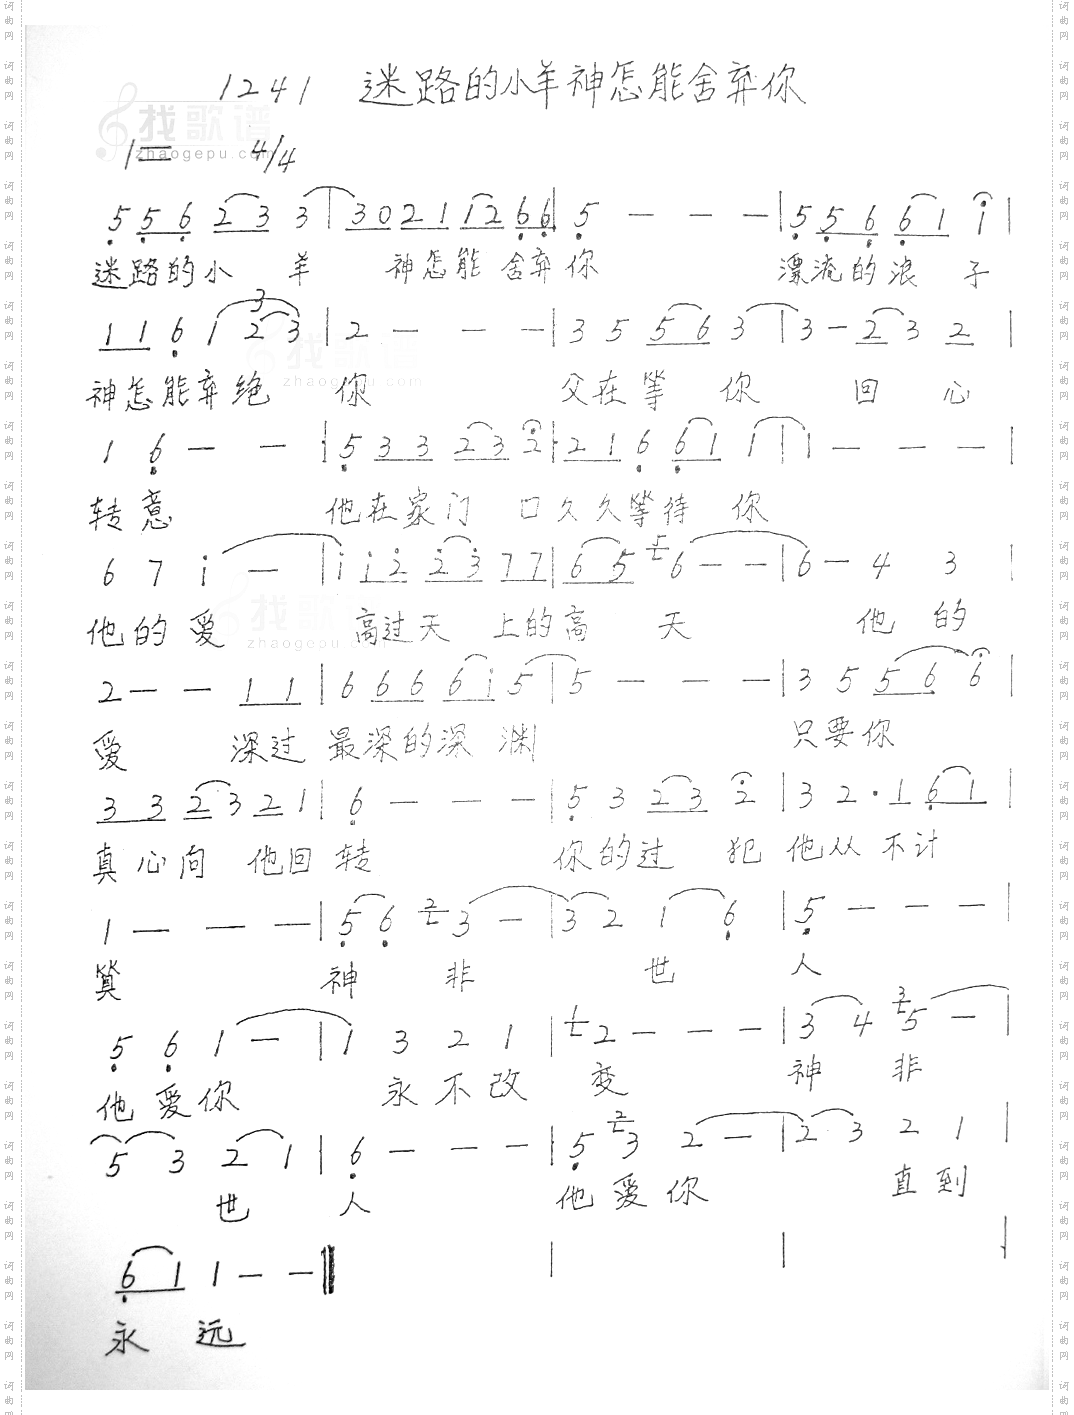 1241 迷路的小羊神怎能舍弃你
找歌谱
zhaogepu.com
1= 4/4
5 5 6 2 3 3 | 3 0 2 1 1 2 6 6 | 5 - - - | 5 5 6 6 1 1 |
迷路的小 羊 神怎能 舍弃你 漂流的浪 子
1 1 6 1 2 3 | 2 - - - | 3 5 5 6 3 | 3 - 2 3 2 |
3
找歌谱
zhaogepu.com
神怎能弃绝 你 父在等 你 回 心
1 6 - - | 5 3 3 2 3 2 | 2 1 6 6 1 1 | 1 - - - |
转意 他在家门 口久久等待 你
6 7 i - | i i 2 2 3 7 7 | 6 5 5 6 - - | 6 - 4 3 |
他的爱 高过天 上的高 天 他 的
找歌谱
zhaogepu.com
2 - - 1 1 | 6 6 6 6 i 5 | 5 - - - | 3 5 5 6 6 |
爱 深过 最深的深 渊 只要你
3 3 2 3 2 1 | 6 - - - | 5 3 2 3 2 | 3 2 · 1 6 1 |
真心向 他回 转 你的过 犯 他从 不计
1 - - - | 5 6 2 3 - | 3 2 1 6 | 5 - - - |
算 神 非 世 人
5 6 1 - | 1 3 2 1 | 1 2 - - - | 3 4 3 5 - |
他爱你 永不改 变 神 非
5 3 2 1 | 6 - - - | 5 2 3 2 - | 2 3 2 1 |
世 人 他爱你 直到
6 1 1 - - ‖
永 远
词曲网